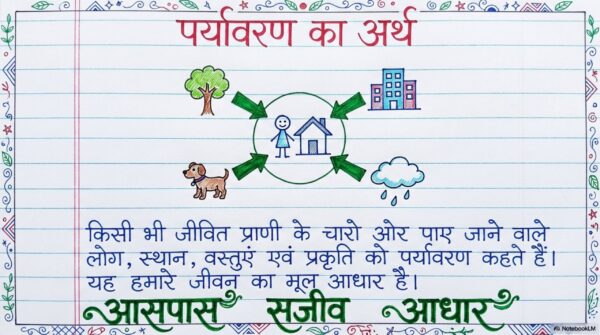 पर्यावरण का अर्थ
किसी भी जीवित प्राणी के चारो ओर पाए जाने वाले
लोग, स्थान, वस्तुएं एवं प्रकृति को पर्यावरण कहते हैं।
यह हमारे जीवन का मूल आधार है।
आसपास सजीव आधार
NotebookLM